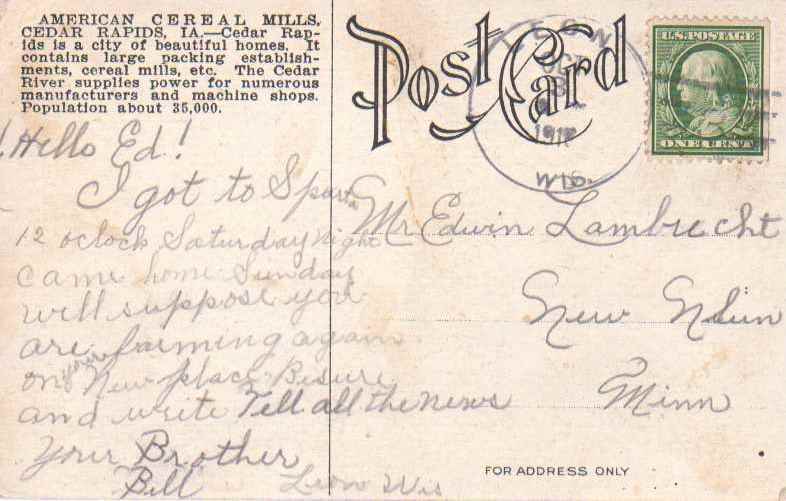 AMERICAN CEREAL MILLS,
CEDAR RAPIDS, IA.—Cedar Rap-
ids is a city of beautiful homes. It
contains large packing establish-
ments, cereal mills, etc. The Cedar
River supplies power for numerous
manufacturers and machine shops.
Population about 35,000.
Post Card
LEON
OCT
3
191
WIS.
U.S. POSTAGE
ONE CENT
Hello Ed!
I got to Sparta
12 oclock Saturday night
came home Sunday
will suppose you
are farming again
on your New place. Besure
and write Tell all the news
your Brother
Bill
Leon Wis
Mr Edwin Lambrecht
New Ulm
Minn
FOR ADDRESS ONLY